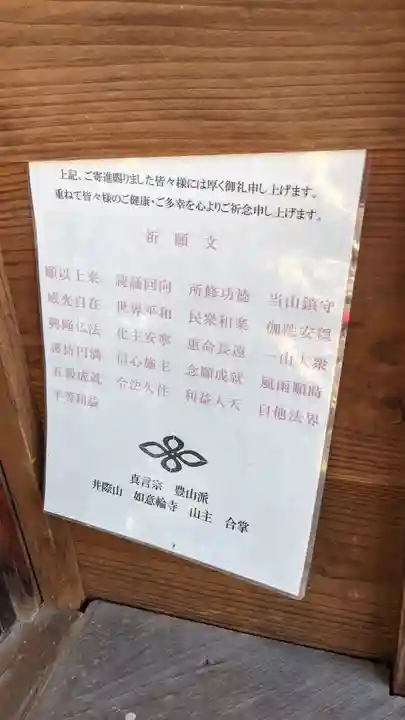 上記、ご寄進賜りました皆々様には厚く御礼申し上げます。
重ねて皆々様のご健康・ご多幸を心よりご祈念申し上げます。
祈願文
願以上来 読誦回向 所修功徳 当山鎮守
威光自在 世界平和 民衆和楽 伽藍安穏
興隆仏法 化主安寧 恵命長遠 一山大衆
護持円満 信心施主 念願成就 風雨順時
五穀成就 令法久住 利益人天 自他法界
平等利益
真言宗 豊山派
井際山 如意輪寺 山主 合掌